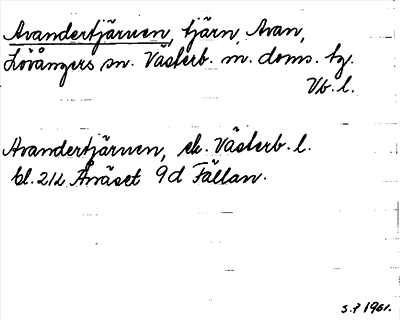 Avandertjärnen, tjärn, Avan,
Lövångers sn. Västerb. m. doms. tg.
Vb. l.
Avandertjärnen, ek. Västerb. l.
bl. 212 Ånäset 9d Fällan.
S.P 1961.